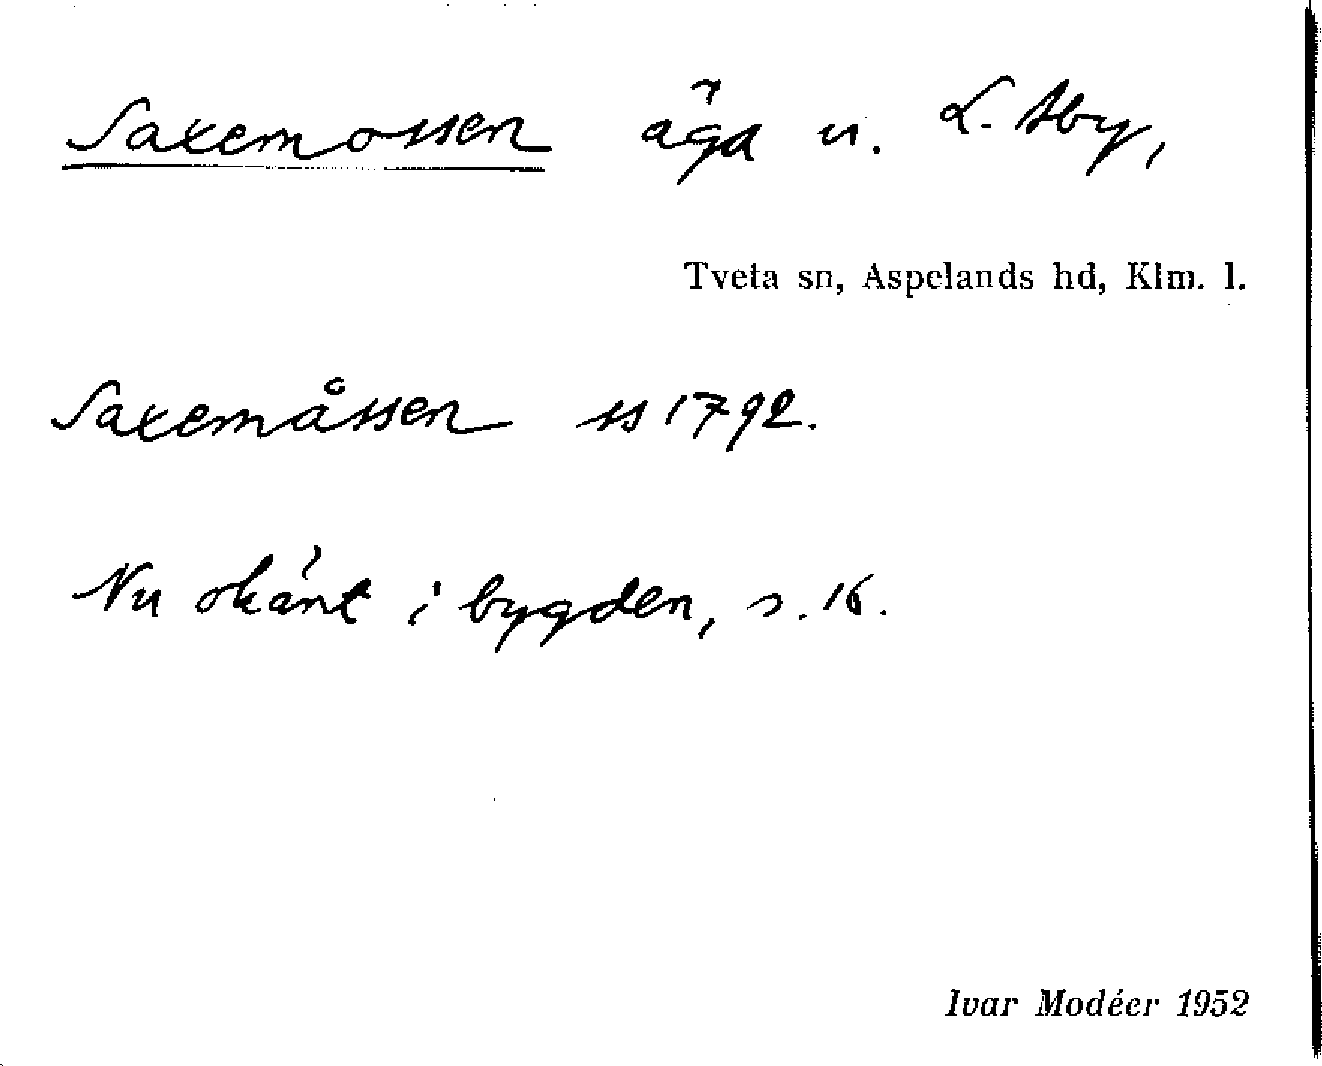 Saxemossen äga u. L. Åby,
Tveta sn, Aspelands hd, Klm. l.
Saxemåssen ss 1792.
Nu okänt i bygden, s. 16.
Ivar Modéer 1952